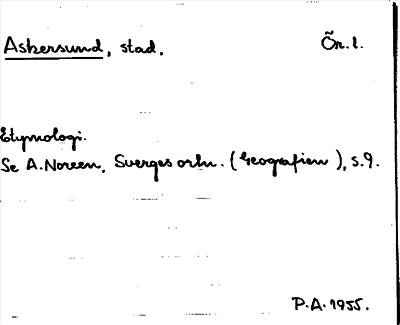 Askersund, stad. Ör. l.
Etymologi.
Se A. Noreen, Sveriges ortn. (Geografien), s. 9.
P.A. 1955.